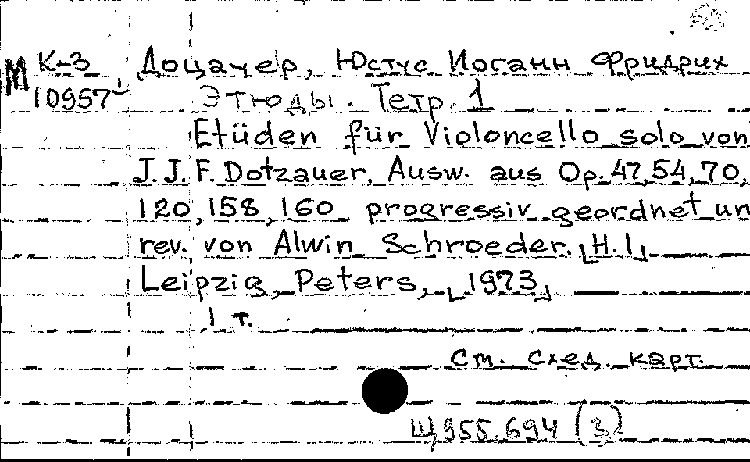 М К-3 Доцауер, Юстус Иоганн Фридрих
10957 Этюды. Тетр. 1
Etüden für Violoncello solo von
J. J. F. Dotzauer, Ausw. aus Op. 47, 54, 70,
120, 158, 160 progressiv geordnet un
rev. von Alwin Schroeder. [H. 1]
Leipzig, Peters, [1973]
1 т.
См. след. карт.
Щ955.694 (3)